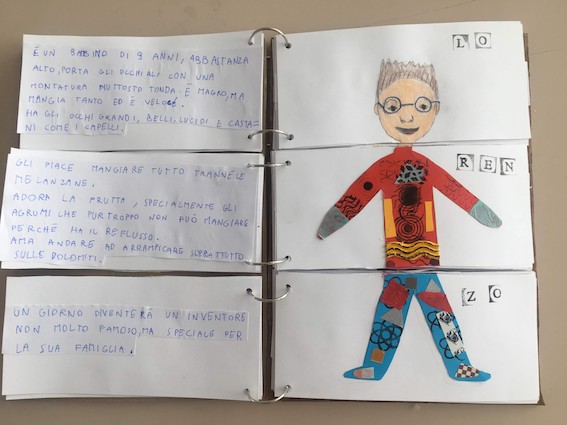 È UN BAMBINO DI 9 ANNI, ABBASTANZA
ALTO, PORTA GLI OCCHIALI CON UNA
MONTATURA PIUTTOSTO TONDA. È MAGRO, MA
MANGIA TANTO ED È VELOCE.
HA GLI OCCHI GRANDI, BELLI, LUCIDI E CASTA=
NI COME I CAPELLI.
GLI PIACE MANGIARE TUTTO TRANNE LE
MELANZANE.
ADORA LA FRUTTA, SPECIALMENTE GLI
AGRUMI CHE PURTROPPO NON PUÒ MANGIARE
PERCHÉ HA IL REFLUSSO.
AMA ANDARE AD ARRAMPICARE SOPRATTUTTO
SULLE DOLOMITI.
UN GIORNO DIVENTERÀ UN INVENTORE
NON MOLTO FAMOSO, MA SPECIALE PER
LA SUA FAMIGLIA.
LO
REN
ZO